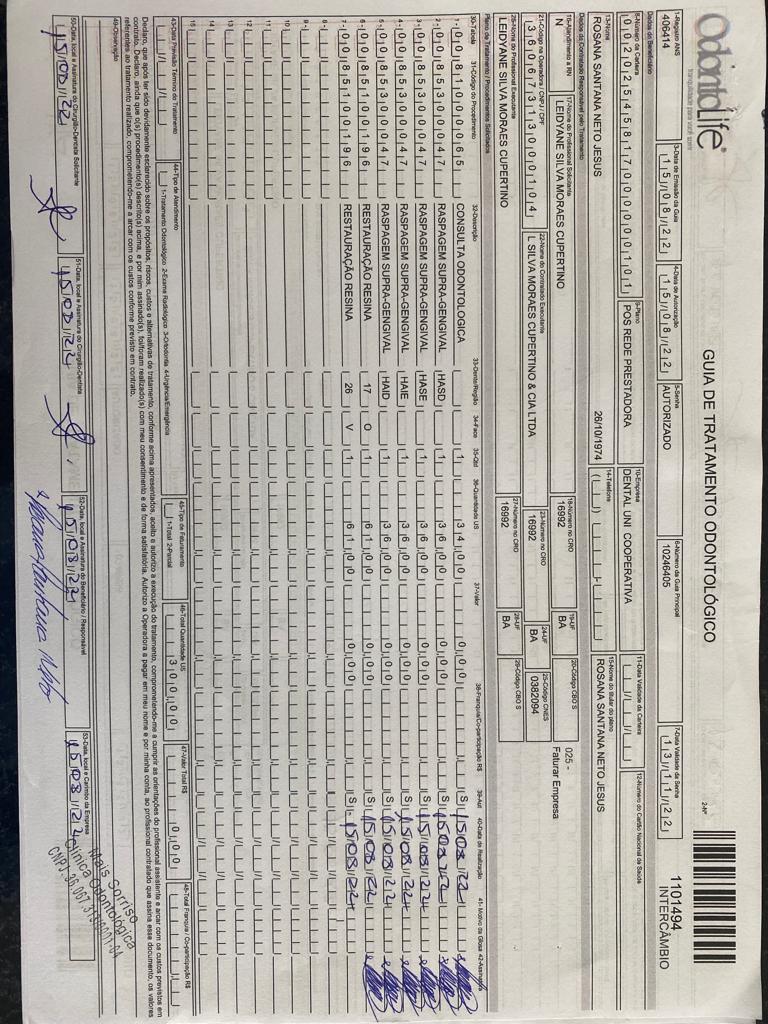 OdontoLife®
tranquilidade para você sorrir
GUIA DE TRATAMENTO ODONTOLÓGICO
2-Nº
1101494
INTERCÂMBIO
1-Registro ANS
406414
3-Data de Emissão da Guia
15/08/22
4-Data de Autorização
15/08/22
5-Senha
AUTORIZADO
6-Número da Guia Principal
10246405
7-Data Validade da Senha
13/11/22
Dados do Beneficiário
8-Número da Carteira
00202545817000000101
9-Plano
POS REDE PRESTADORA
10-Empresa
DENTAL UNI COOPERATIVA
11-Data Validade da Carteira
12-Número do Cartão Nacional de Saúde
13-Nome
ROSANA SANTANA NETO JESUS
26/10/1974
14-Telefone
15-Nome do titular do plano
ROSANA SANTANA NETO JESUS
Dados do Contratado Responsável pelo Tratamento
16-Atendimento a RN
N
17-Nome do Profissional Solicitante
LEIDYANE SILVA MORAES CUPERTINO
18-Número no CRO
16992
19-UF
BA
20-Código CBO S
025 -
Faturar Empresa
21-Código na Operadora / CNPJ / CPF
36067313000104
22-Nome do Contratado Executante
L SILVA MORAES CUPERTINO & CIA LTDA
23-Número no CRO
16992
24-UF
BA
25-Código CNES
0382094
26-Nome do Profissional Executante
LEIDYANE SILVA MORAES CUPERTINO
27-Número no CRO
16992
28-UF
BA
29-Código CBO S
Plano de Tratamento / Procedimentos Solicitados
30-Tabela 31-Código do Procedimento 32-Descrição 33-Dente/Região 34-Face 35-Qtd 36-Quantidade US 37-Valor 38-Franquia/Co-participação R$ 39-Aut 40-Data de Realização 41- Motivo da Glosa 42-Assinatura
1- 00 81000065 CONSULTA ODONTOLOGICA 1 34,00 0,00 S 15/08/22
2- 00 85300047 RASPAGEM SUPRA-GENGIVAL HASD 1 36,00 0,00 S 15/08/22
3- 00 85300047 RASPAGEM SUPRA-GENGIVAL HASE 1 36,00 0,00 S 15/08/22
4- 00 85300047 RASPAGEM SUPRA-GENGIVAL HAIE 1 36,00 0,00 S 15/08/22
5- 00 85300047 RASPAGEM SUPRA-GENGIVAL HAID 1 36,00 0,00 S 15/08/22
6- 00 85100196 RESTAURAÇÃO RESINA 17 O 1 61,00 0,00 S 15/08/22
7- 00 85100196 RESTAURAÇÃO RESINA 26 V 1 61,00 0,00 S 15/08/22
8-
9-
10
11
12
13
14
15
43-Data Previsão Término do Tratamento
44-Tipo de Atendimento
1-Tratamento Odontológico 2-Exame Radiológico 3-Ortodontia 4-Urgência/Emergência
45-Tipo de Faturamento
1-Total 2-Parcial
46-Total Quantidade US
300,00
47-Valor Total R$
0,00
48-Total Franquia / Co-participação R$
Declaro, que após ter sido devidamente esclarecido sobre os propósitos, riscos, custos e alternativas de tratamento, conforme acima apresentados, aceito e autorizo a execução do tratamento, comprometendo-me a cumprir as orientações do profissional assistente e arcar com os custos previstos em
contrato. Declaro, ainda que o(s) procedimento(s) descrito(s) acima, e por mim assinado(s), foi/foram realizado(s) com meu consentimento e de forma satisfatória. Autorizo a Operadora a pagar em meu nome e por minha conta, ao profissional contratado que assina esse documento, os valores
referentes ao tratamento realizado, comprometendo-me a arcar com os custos conforme previsto em contrato.
49-Observação
50-Data, local e Assinatura do Cirurgião-Dentista Solicitante
15/08/22
51-Data, local e Assinatura do Cirurgião-Dentista
15/08/22
52-Data, local e Assinatura do Beneficiário / Responsável
15/08/22
53-Data, local e Carimbo da Empresa
15/08/22
Mais Sorriso
Clínica Odontológica
CNPJ: 36.067.313/0001-04